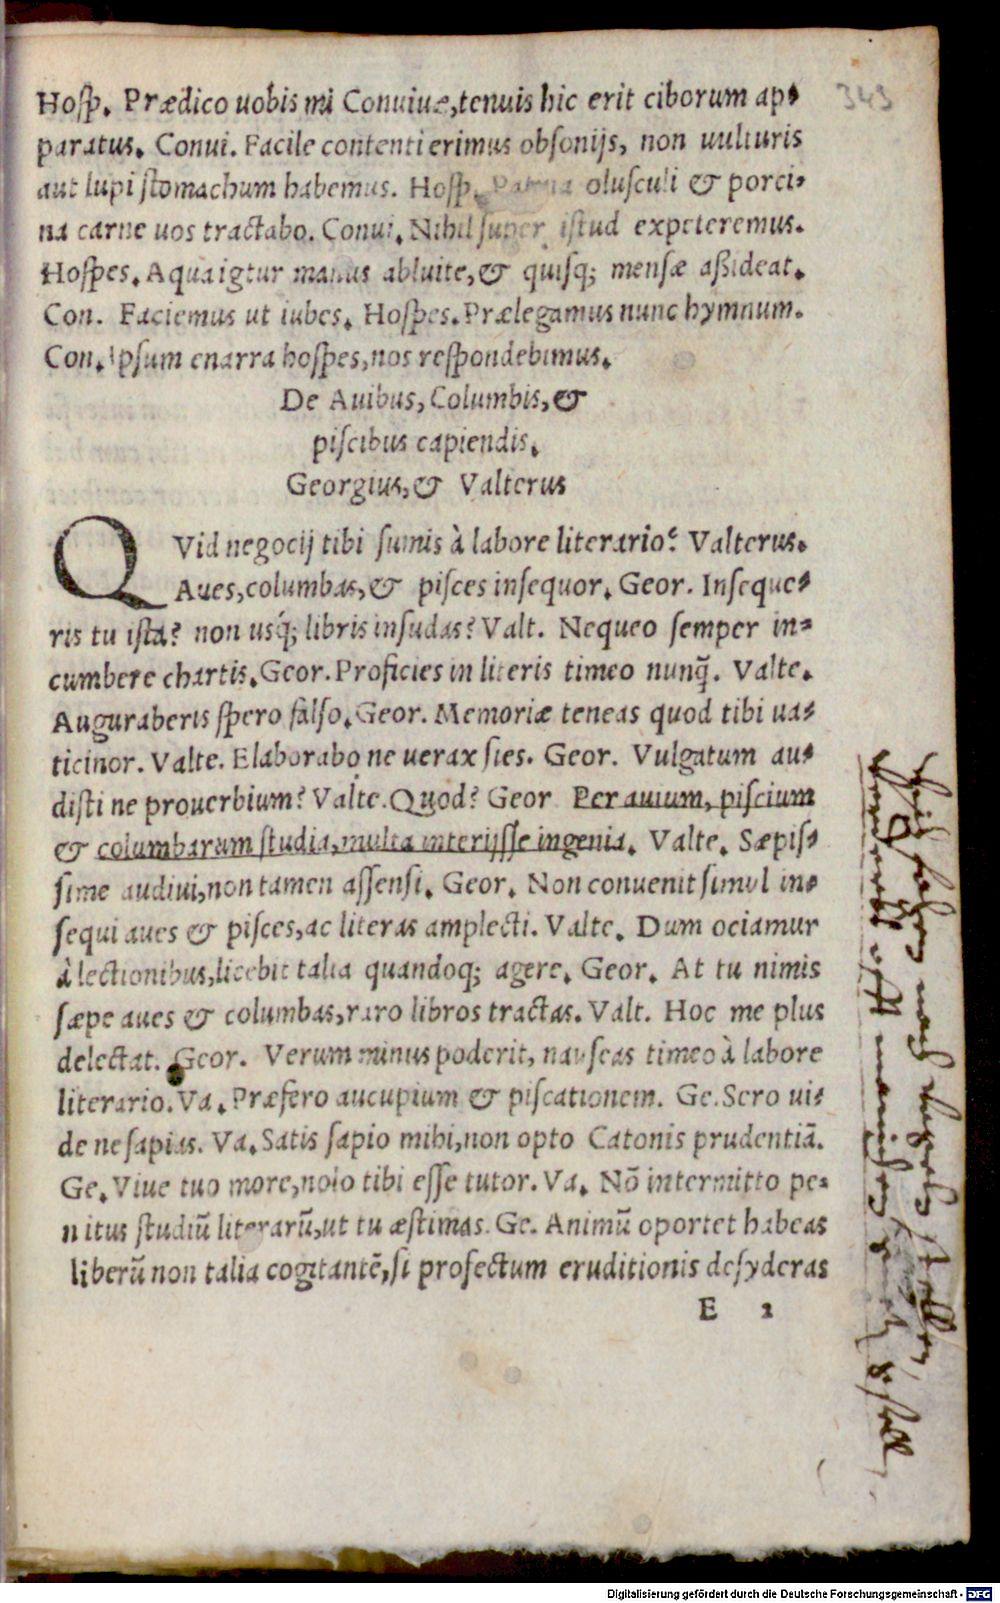 Hoſp. Prædico uobis mi Conuiuæ, tenuis hic erit ciborum ap-
paratus. Conui. Facile contenti erimus obſonijs, non uulturis
aut lupi ſtomachum habemus. Hoſp. oluſculi & porci-
na carne uos tractabo. Conui. Nihil ſuper iſtud expeteremus.
Hoſpes. Aqua igtur manus abluite, & quiſq; menſæ aßideat.
Con. Faciemus ut iubes. Hoſpes. Prælegamus nunc hymnum.
Con. Ipſum enarra hoſpes, nos reſpondebimus.
De Auibus, Columbis, &
piſcibus capiendis.
Georgius, & Valterus
QVid negocij tibi ſumis à labore literario? Valterus.
Aues, columbas, & piſces inſequor. Geor. Inſeque-
ris tu iſta? non uſq́; libris inſudas? Valt. Nequeo ſemper in-
cumbere chartis. Geor. Proficies in literis timeo nunq̃. Valte.
Auguraberis ſpero falſo. Geor. Memoriæ teneas quod tibi ua-
ticinor. Valte. Elaborabo ne uerax ſies. Geor. Vulgatum au-
diſti ne prouerbium? Valte. Quod? Geor Per auium, piſcium
& columbarum ſtudia, multa interijſſe ingenia. Valte. Sæpiſ-
ſime audiui, non tamen aſſenſi. Geor. Non conuenit ſimul in-
ſequi aues & piſces, ac literas amplecti. Valte. Dum ociamur
à lectionibus, licebit talia quandoq; agere. Geor. At tu nimis
ſæpe aues & columbas, raro libros tractas. Valt. Hoc me plus
delectat. Geor. Verum minus poderit, nauſeas timeo à labore
literario. Va. Præfero aucupium & piſcationem. Ge. Sero ui-
de ne ſapias. Va. Satis ſapio mihi, non opto Catonis prudentiã.
Ge. Viue tuo more, nolo tibi eſſe tutor. Va. Nõ intermitto pe-
nitus ſtudiũ literarũ, ut tu æſtimas. Ge. Animũ oportet habeas
liberũ non talia cogitantẽ, ſi profectum eruditionis deſyderas
E 2
343
Digitalisierung gefördert durch die Deutsche Forschungsgemeinschaft - DFG